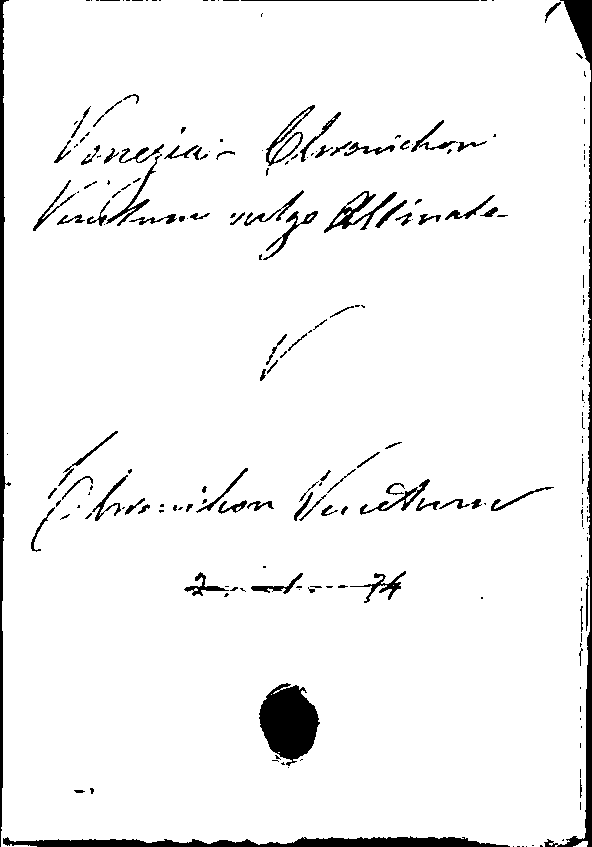 Venezia - Chronichon
Venetum vulgo Altinate
V
Chronichon Venetum
2 74